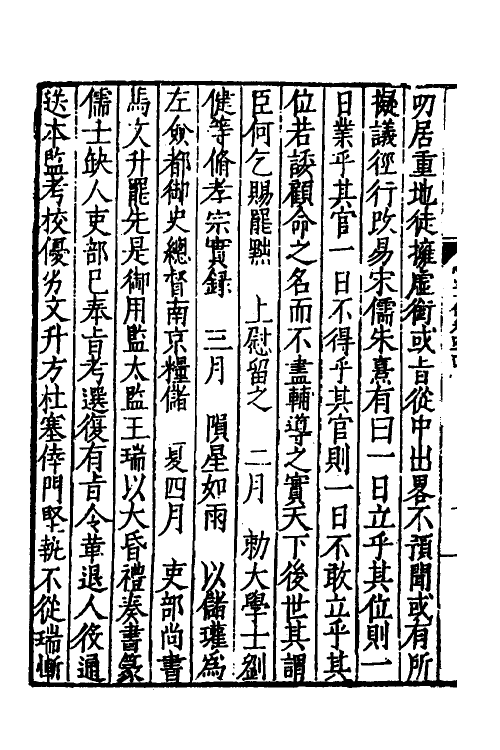 叨居重地徒擁虛銜或旨從中出畧不預聞或有所
擬議徑行改易宋儒朱熹有曰一日立乎其位則一
日業乎其官一日不得乎其官則一日不敢立乎其
位若談顧命之名而不盡輔導之實天下後世其謂
臣何乞賜罷黜　上慰留之　二月　勅大學士劉
健等脩孝宗實錄　三月　隕星如雨　以儲瓘為
左僉都御史總督南京糧儲　夏四月　吏部尚書
馬文升罷先是御用監太監王瑞以大昏禮奏書篆
儒士缺人吏部巳奉旨考選復有旨令革退人役通
送本監考校優劣文升方杜塞倖門堅執不從瑞慚